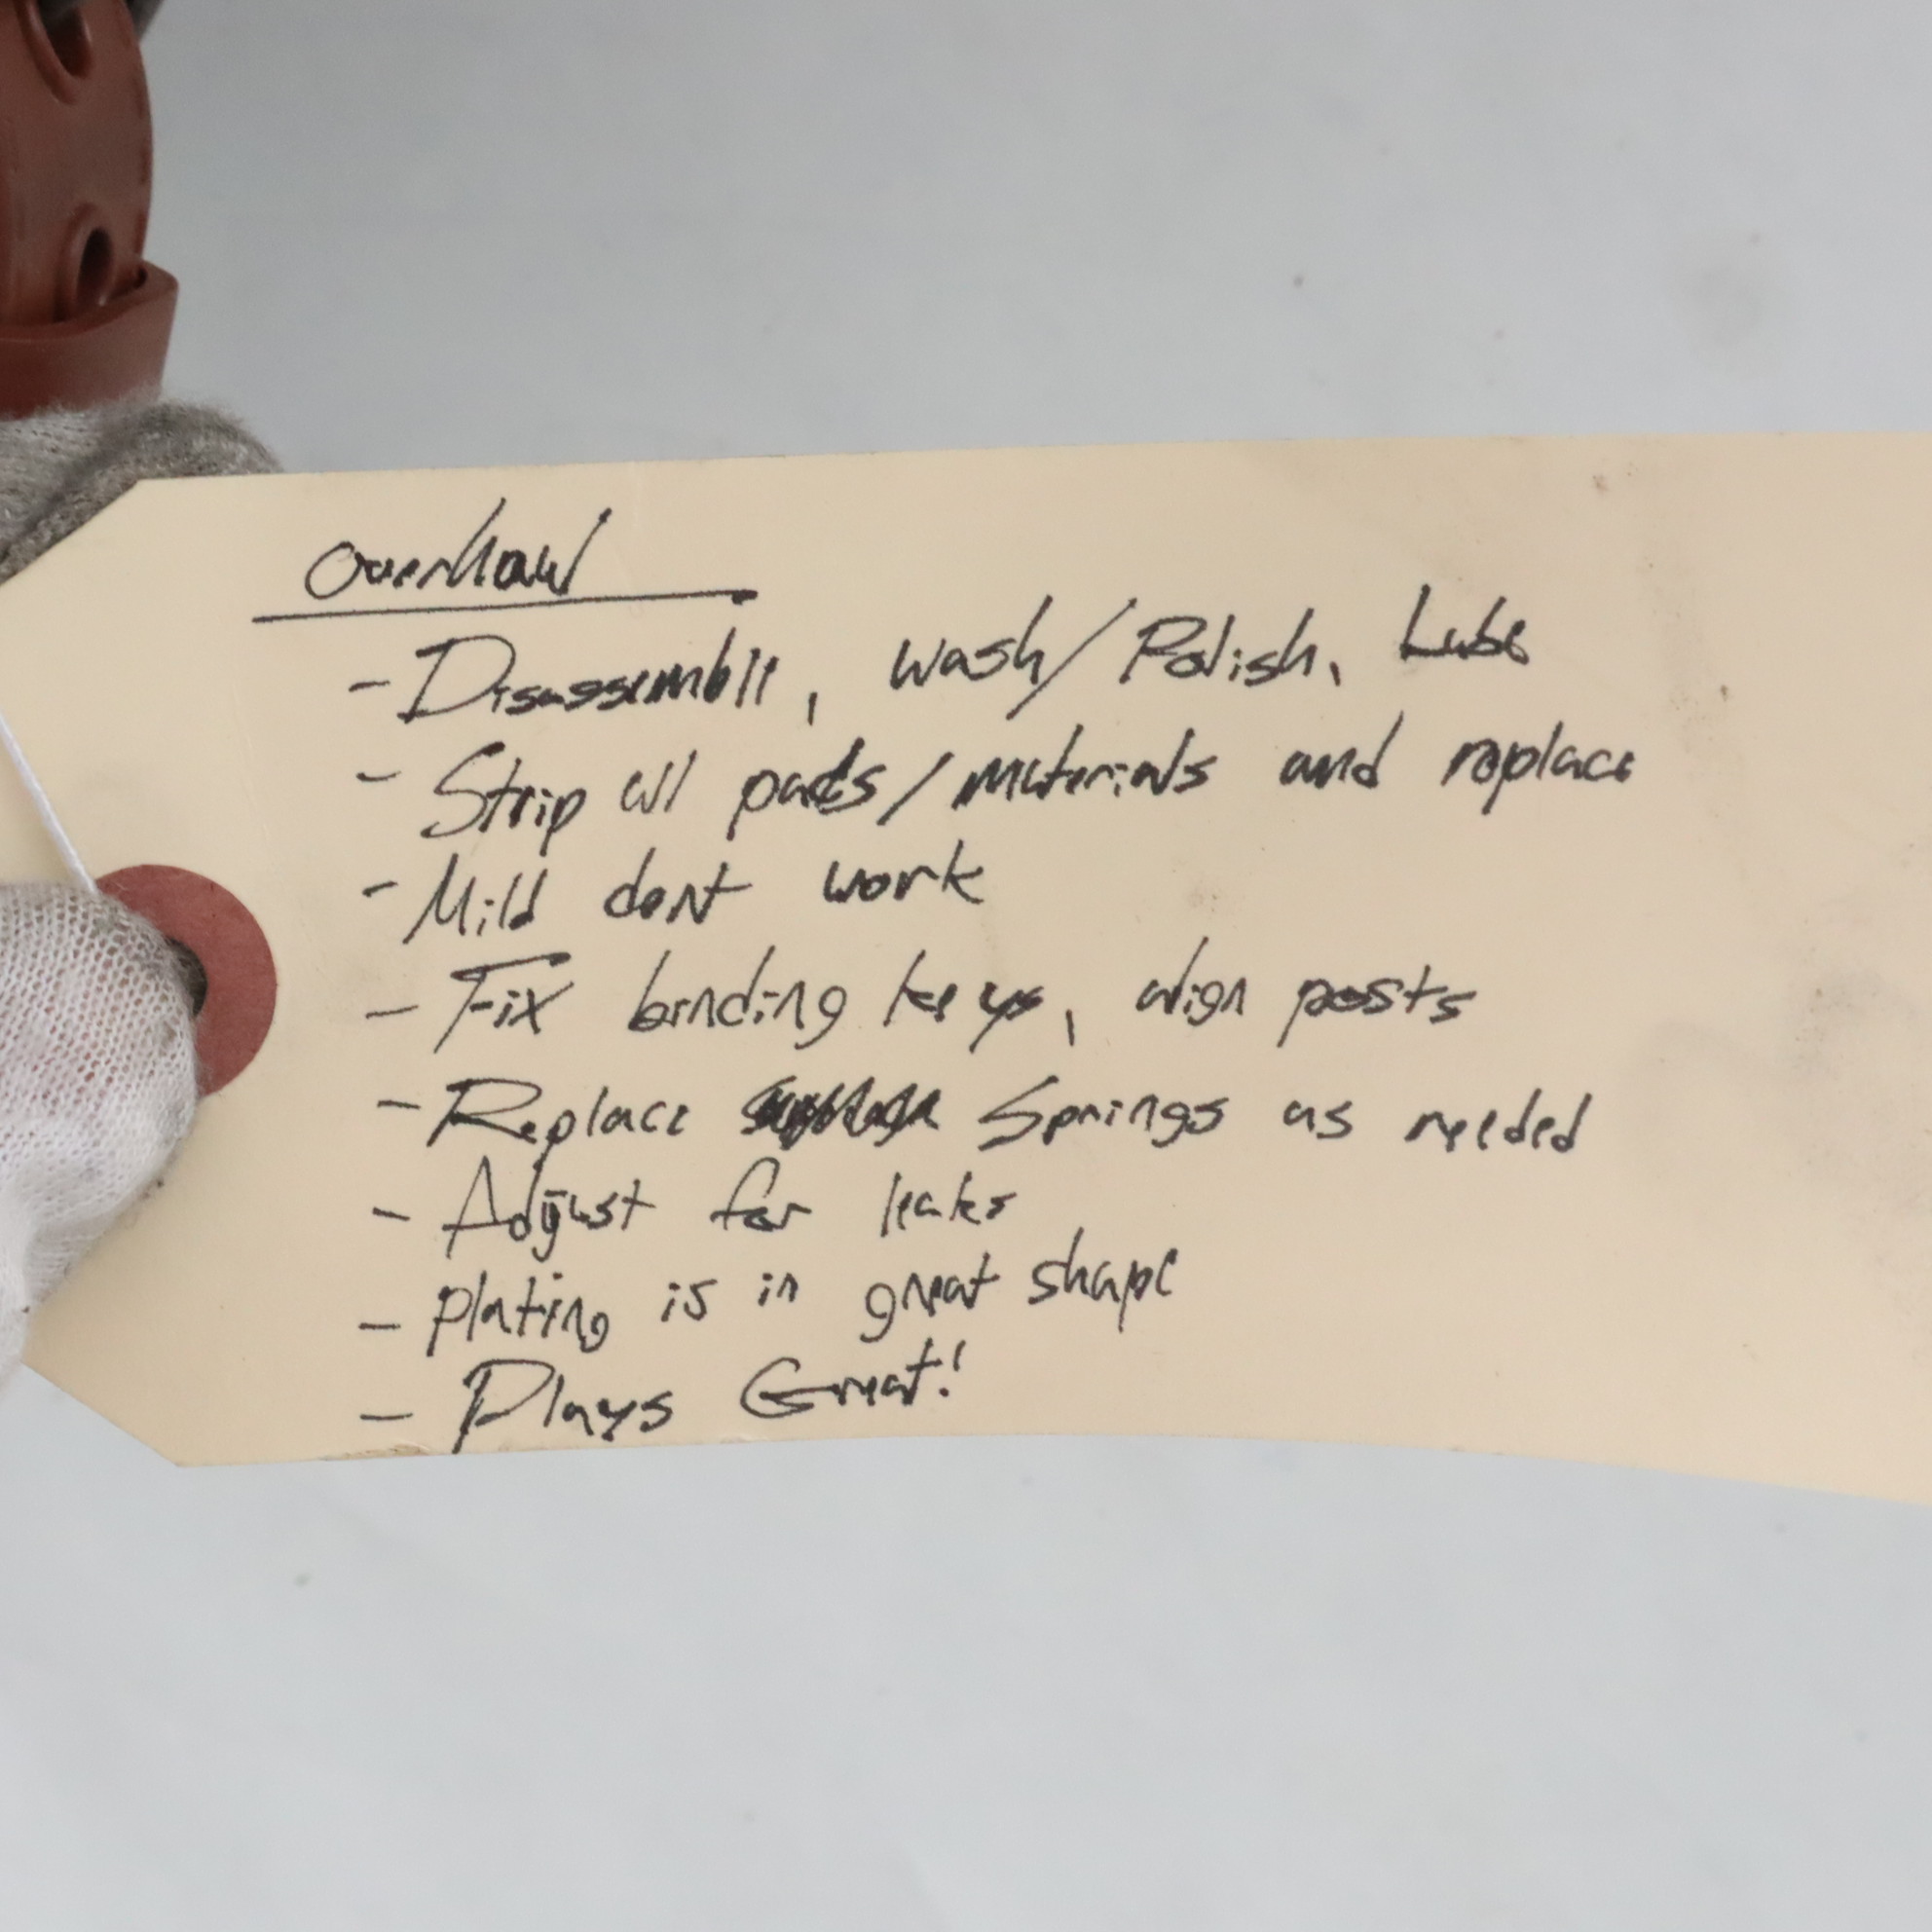 Overhaul
- Disassemble, wash/Polish, Lube
- Strip all pads/materials and replace
- Mild dent work
- Fix binding keys, align posts
- Replace Springs as needed
- Adjust for leaks
- plating is in great shape
- Plays Great!